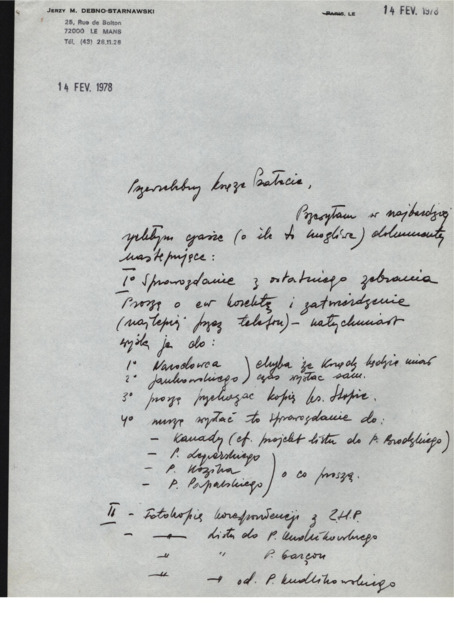 JERZY M. DEBNO-STARNAWSKI
28, Rue de Bolton
72000 LE MANS
Tél, (43) 28.11.28
PARIS, LE 14 FEV. 1978
14 FEV. 1978
Przewielebny Księże Prałacie,
Przesyłam w najbardziej
szybkim czasie (o ile to możliwe) dokumenty
następujące:
I° Sprawozdanie z ostatniego zebrania
Proszę o ew korektę i zatwierdzenie
(najlepiej przez telefon) – natychmiast
wyślę je do:
1° Narodowca ) chyba że Ksiądz będzie miał
2° Jankowskiego ) czas wysłać sam.
3° proszę przekazać kopię ks.
4° muszę wysłać to sprawozdanie do:
– Kanady (cf. projekt listu do P. Brodzkiego)
– P.
– P. Kozika
– P. ) o co proszę.
II – Fotokopię korespondencji z Z.H.P.
– listu do P. Kudlikowskiego
– " " P. Garçon
– " → od. P. Kudlikowskiego